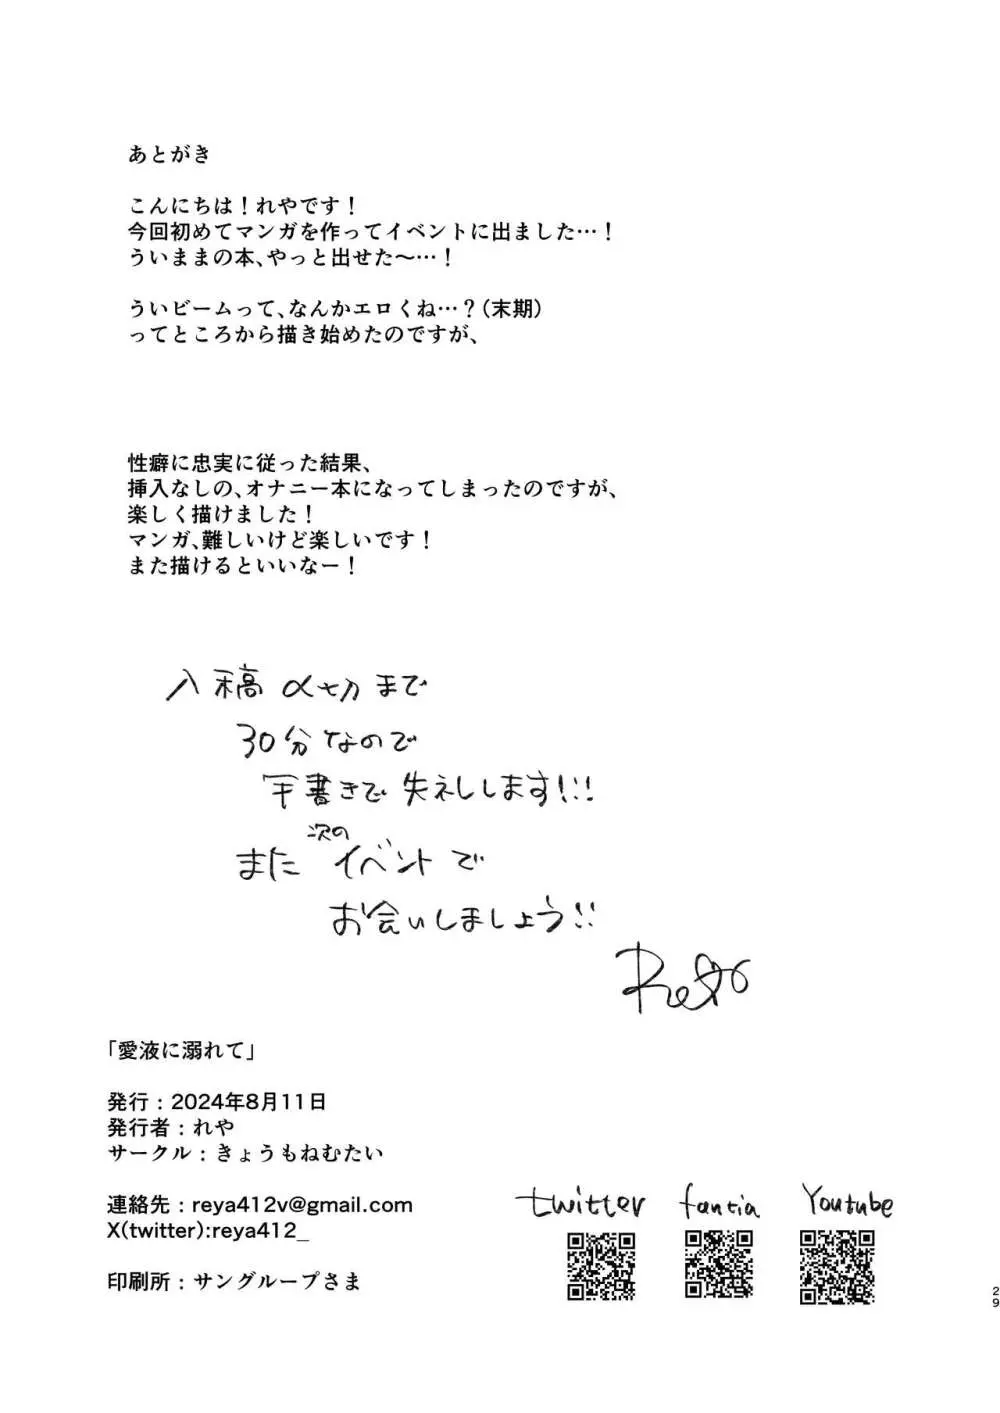 あとがき
こんにちは！れやです！
今回初めてマンガを作ってイベントに出ました…！
ういままの本、やっと出せた〜…！
ういビームって、なんかエロくね…？(末期)
ってところから描き始めたのですが、
性癖に忠実に従った結果、
挿入なしの、オナニー本になってしまったのですが、
楽しく描けました！
マンガ、難しいけど楽しいです！
また描けるといいなー！
入稿〆切まで
30分なので
手書きで失礼します!!!
また次のイベントで
お会いしましょう!!
「愛液に溺れて」
発行：2024年8月11日
発行者：れや
サークル：きょうもねむたい
連絡先：reya412v@gmail.com
X(twitter):reya412_
印刷所：サングループさま
twitter fantia Youtube
29